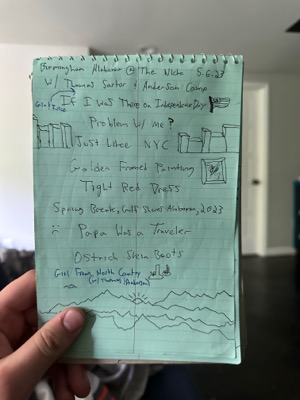 Birmingham Alabama @ The Nick 5.6.23
w/ Thomas Sartor & Anderson Camp
If I Was There on Independence Day
Problem w/ me?
Just Like NYC
Golden Framed Painting
Tight Red Dress
Spring Break, Gulf Shores Alabama, 2023
Papa Was a Traveler
Ostrich Skin Boots
Girl From North Country
(w/ Thomas & Anderson)